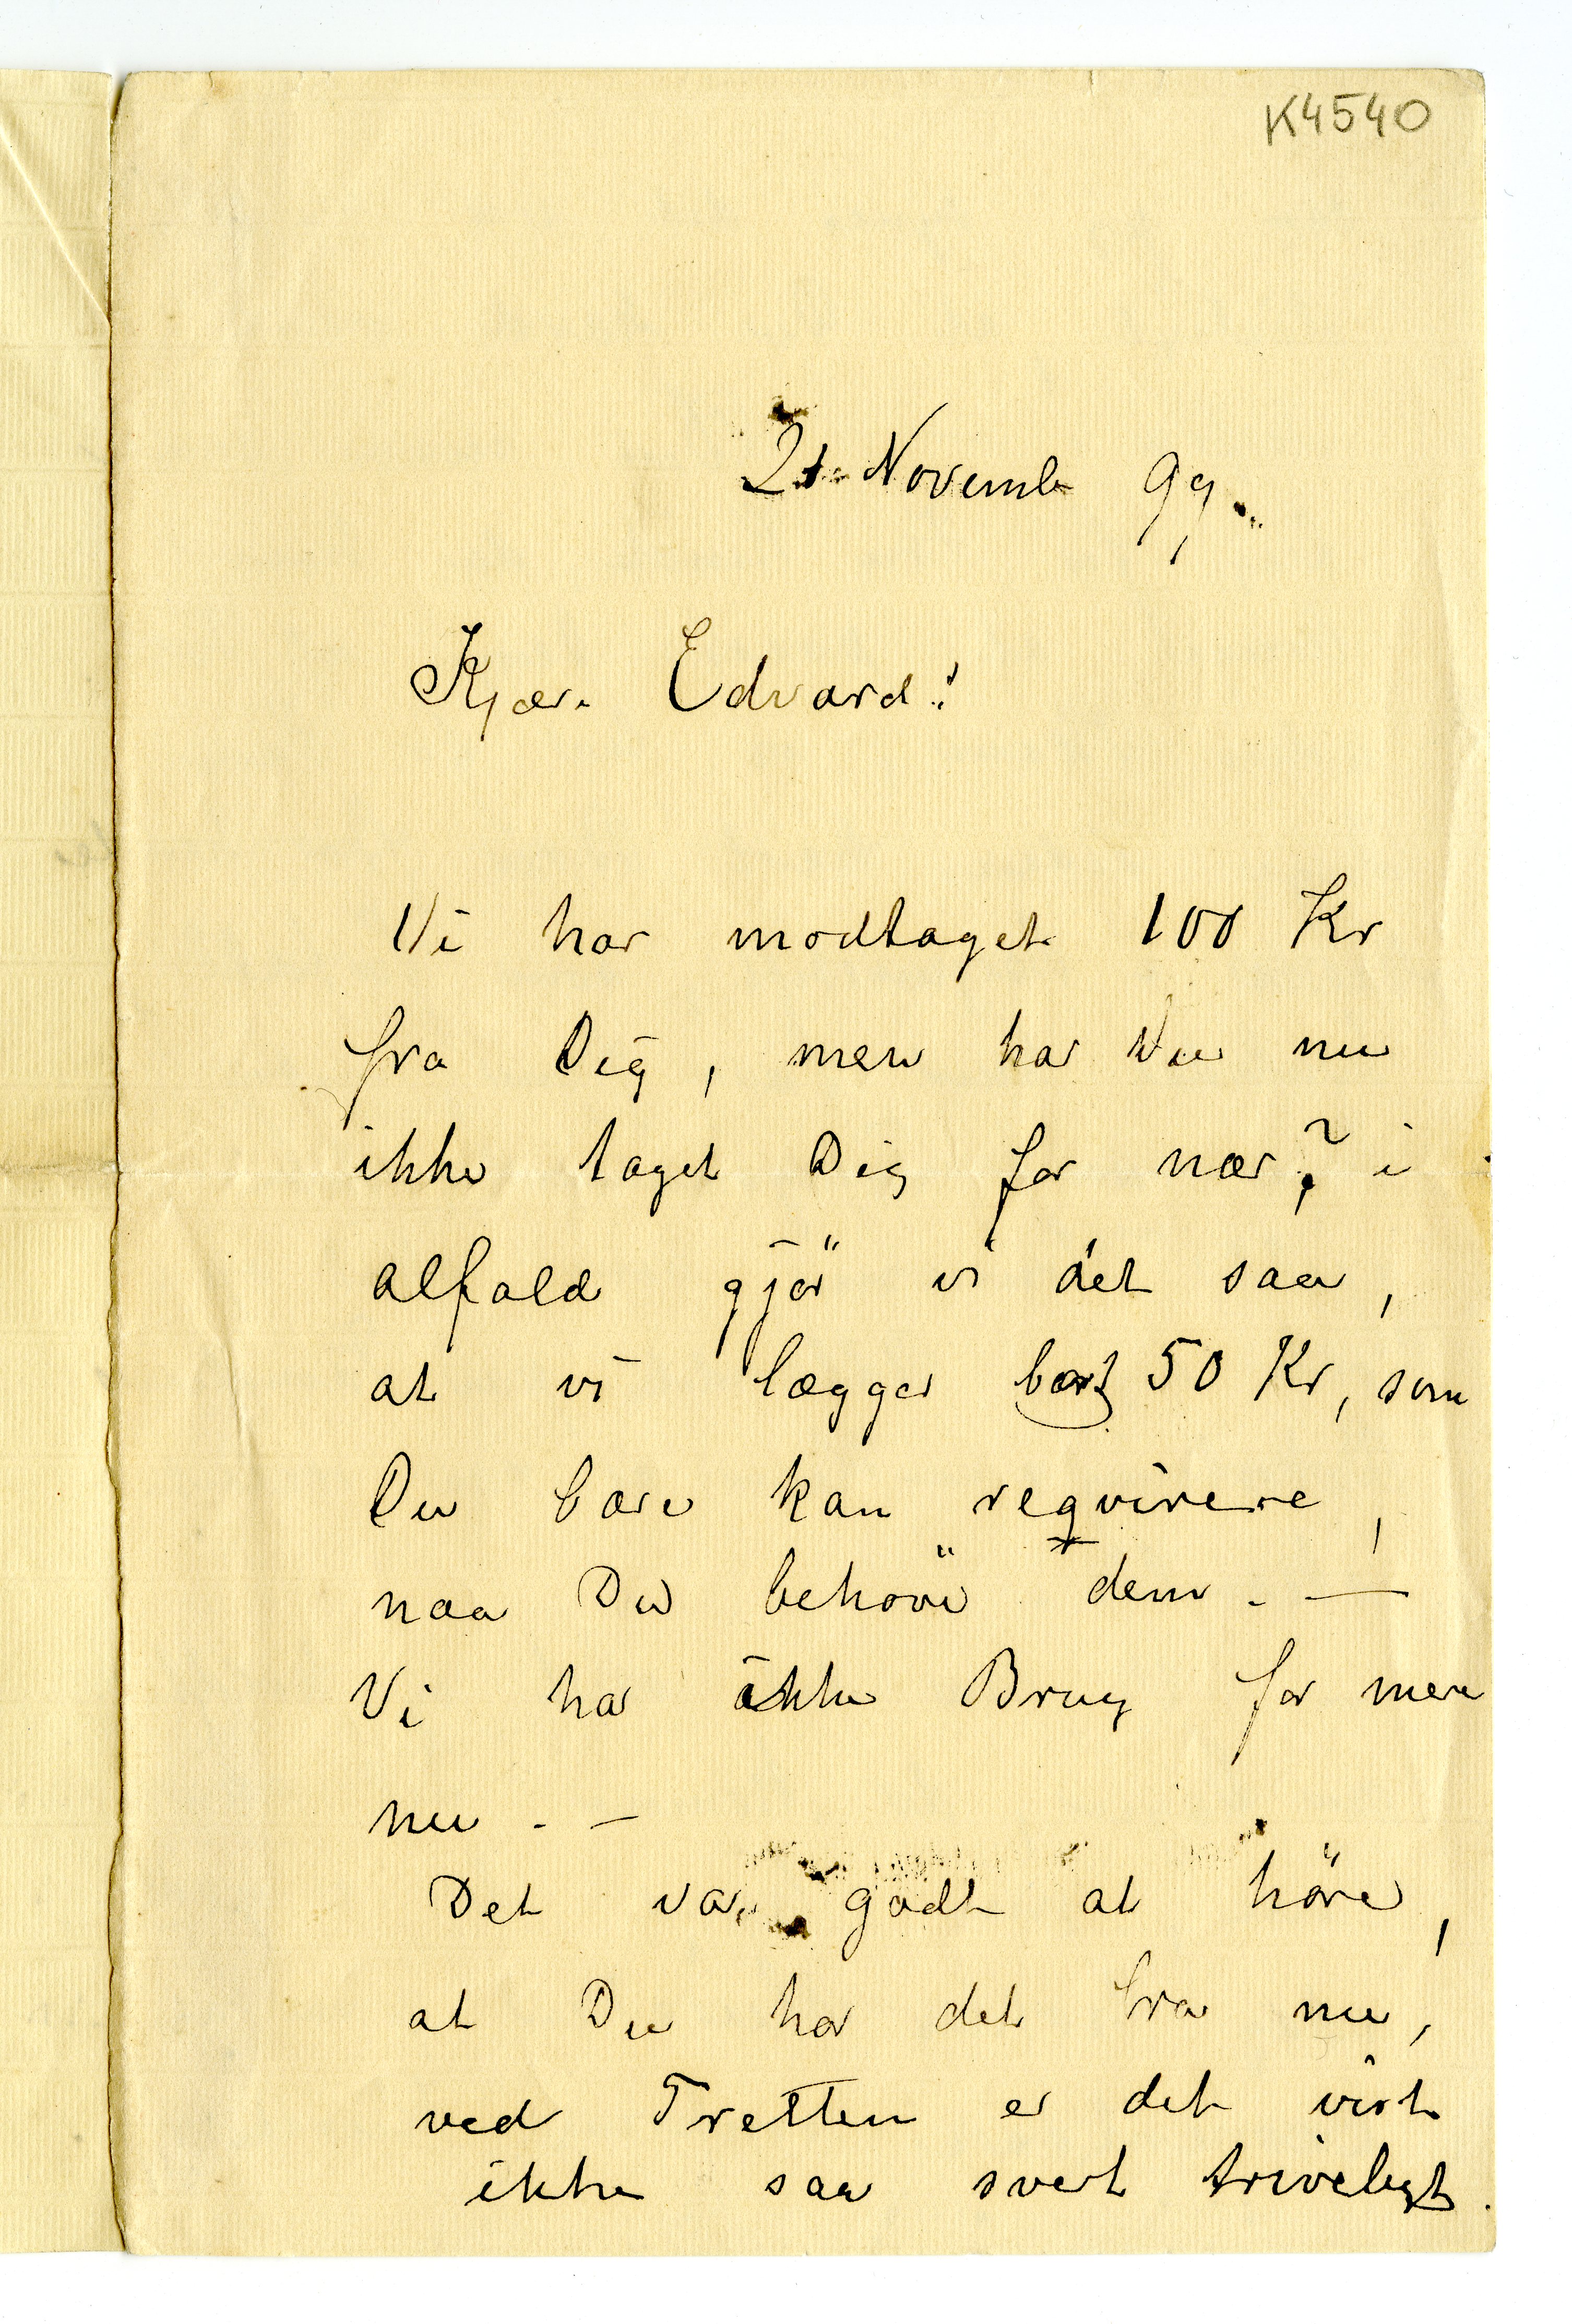 K4540
21. Novemb 99.
Kjære Edvard!
Vi har modtaget 100 Kr
fra Dig, men har Du nu
ikke taget Dig for nær? i
alfald gjör vi det saa,
at vi lægger bort 50 Kr, som
Du bare kan reqvirere,
naa Du behöve dem. —
Vi har ikke Brug for mere
nu. —
Det var godt at höre,
at Du har det bra nu,
ved Tretten er det vist
ikke saa svert triveligt.